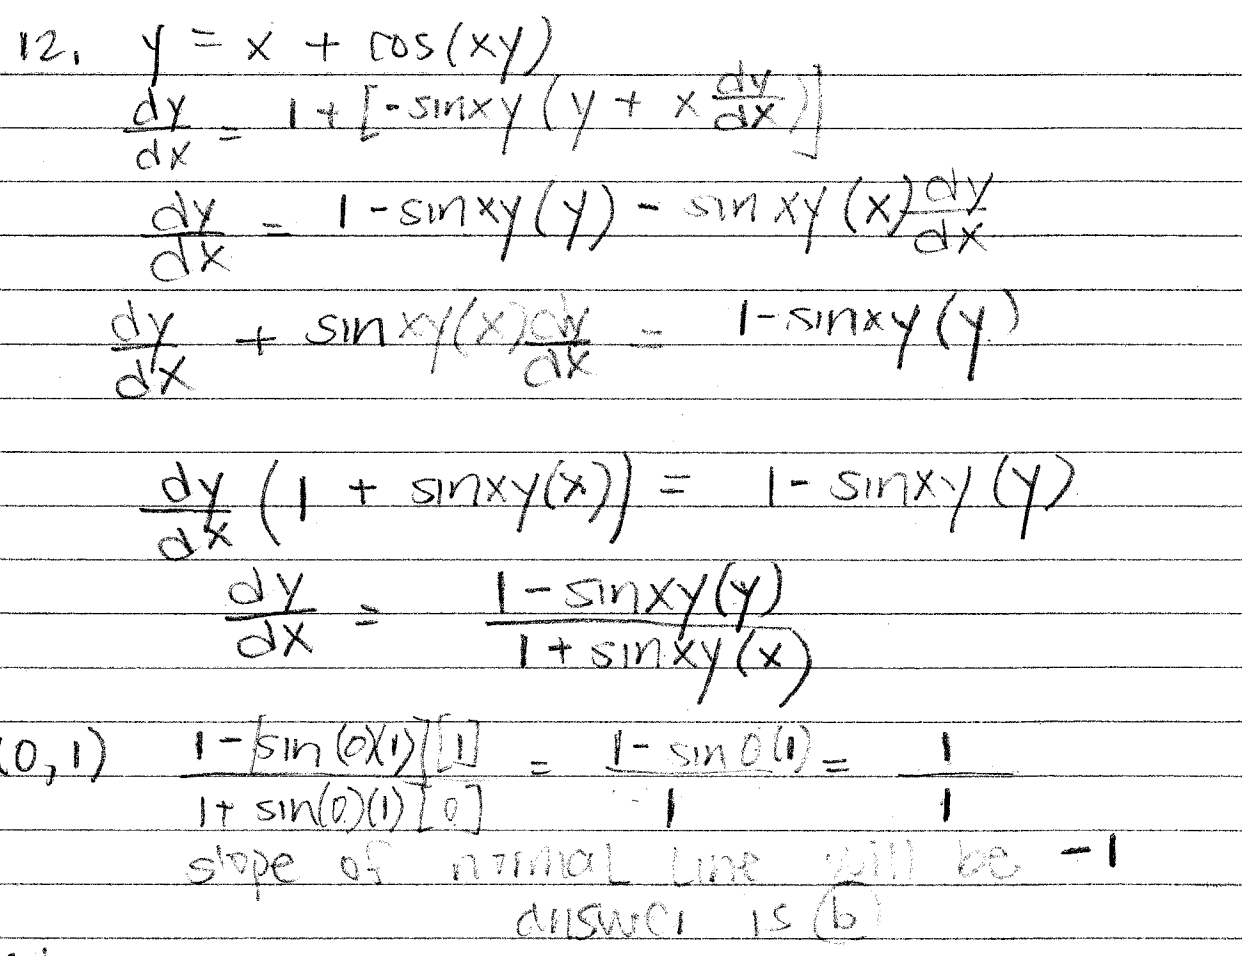 12. y = x + cos(xy)
dy/dx = 1 + [-sinxy (y + x dy/dx)]
dy/dx = 1 - sinxy(y) - sin xy (x) dy/dx
dy/dx + sin xy(x) dy/dx = 1 - sinxy (y)
dy/dx (1 + sinxy(x)) = 1 - sinxy (y)
dy/dx = 1 - sinxy(y) / 1 + sinxy(x)
(0,1) 1 - [sin (0)(1)][1] / 1 + sin(0)(1)[0] = 1 - sin 0(1) / 1 = 1/1
slope of normal line will be -1
answer is (b)